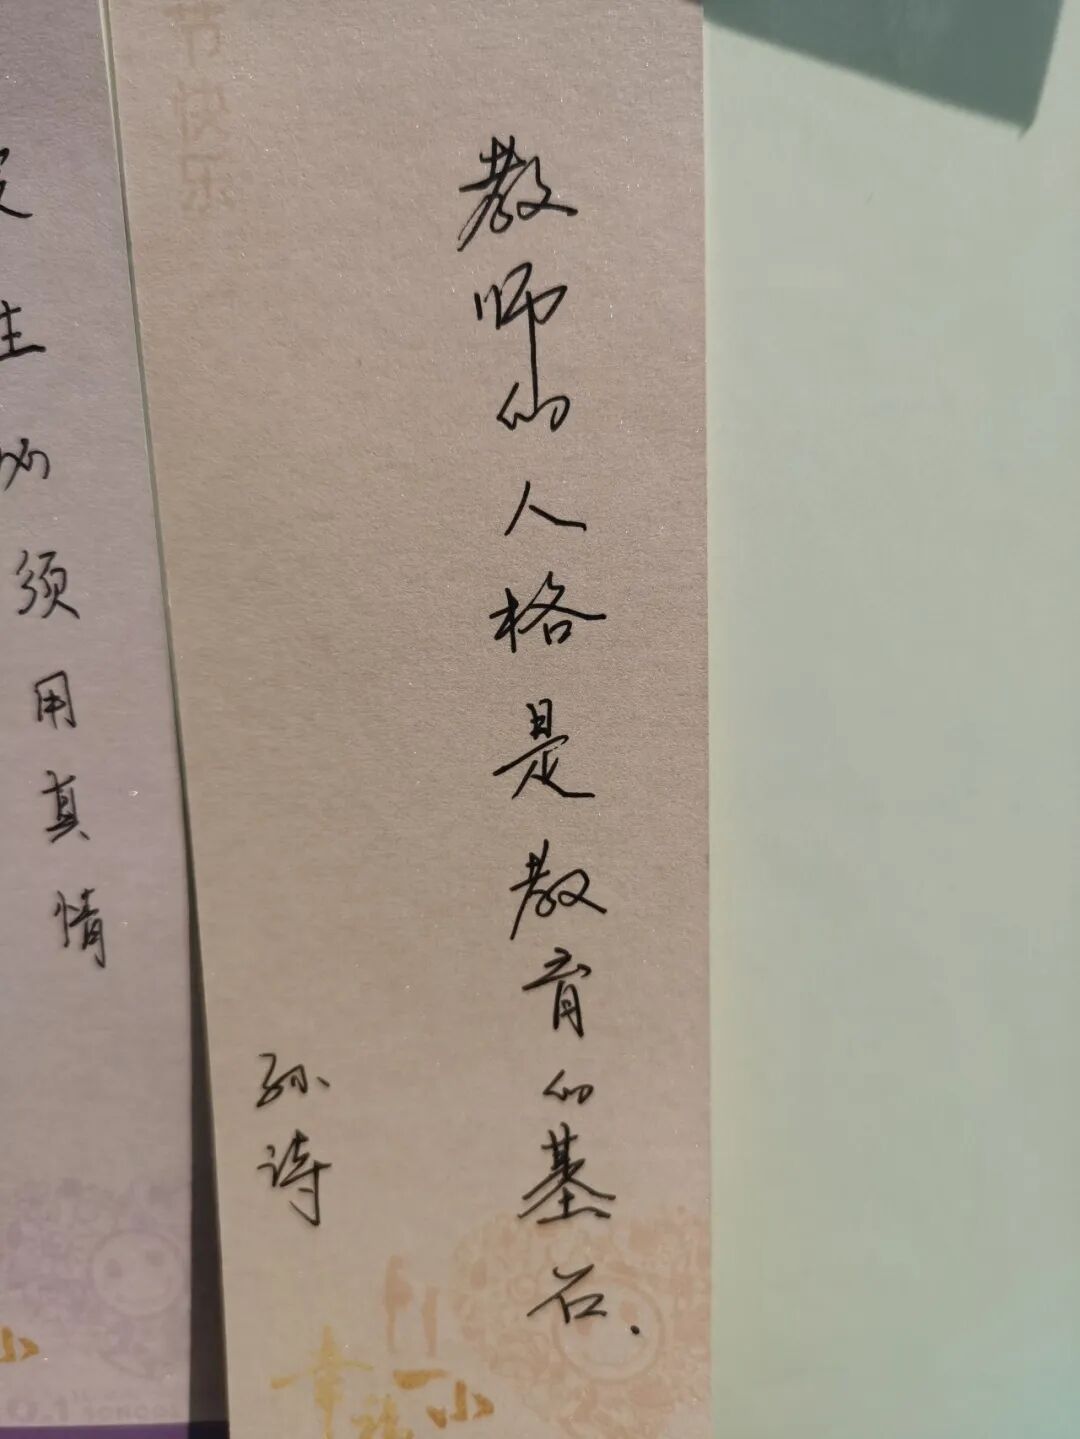 节快乐
教师的人格是教育的基石.
孙诗
幸福一小
生必须用真情
小